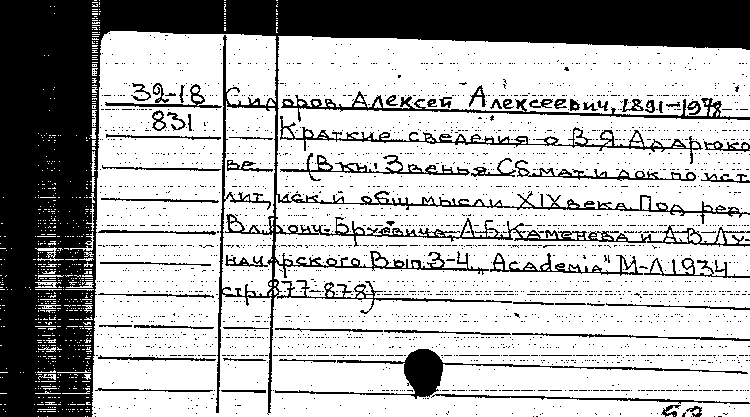 32-18 Сидоров, Алексей Алексеевич, 1891-1978
831 Краткие сведения о В.Я. Адарюко
ве. (В кн.: Звенья. Сб. мат. и док. по ист.
лит., иск. и общ. мысли XIX века. Под ред.
Вл. Бонч-Бруевича, Л.Б. Каменева и А.В. Лу-
начарского. Вып. 3-4, "Academia" М-Л 1934
стр. 877-878)